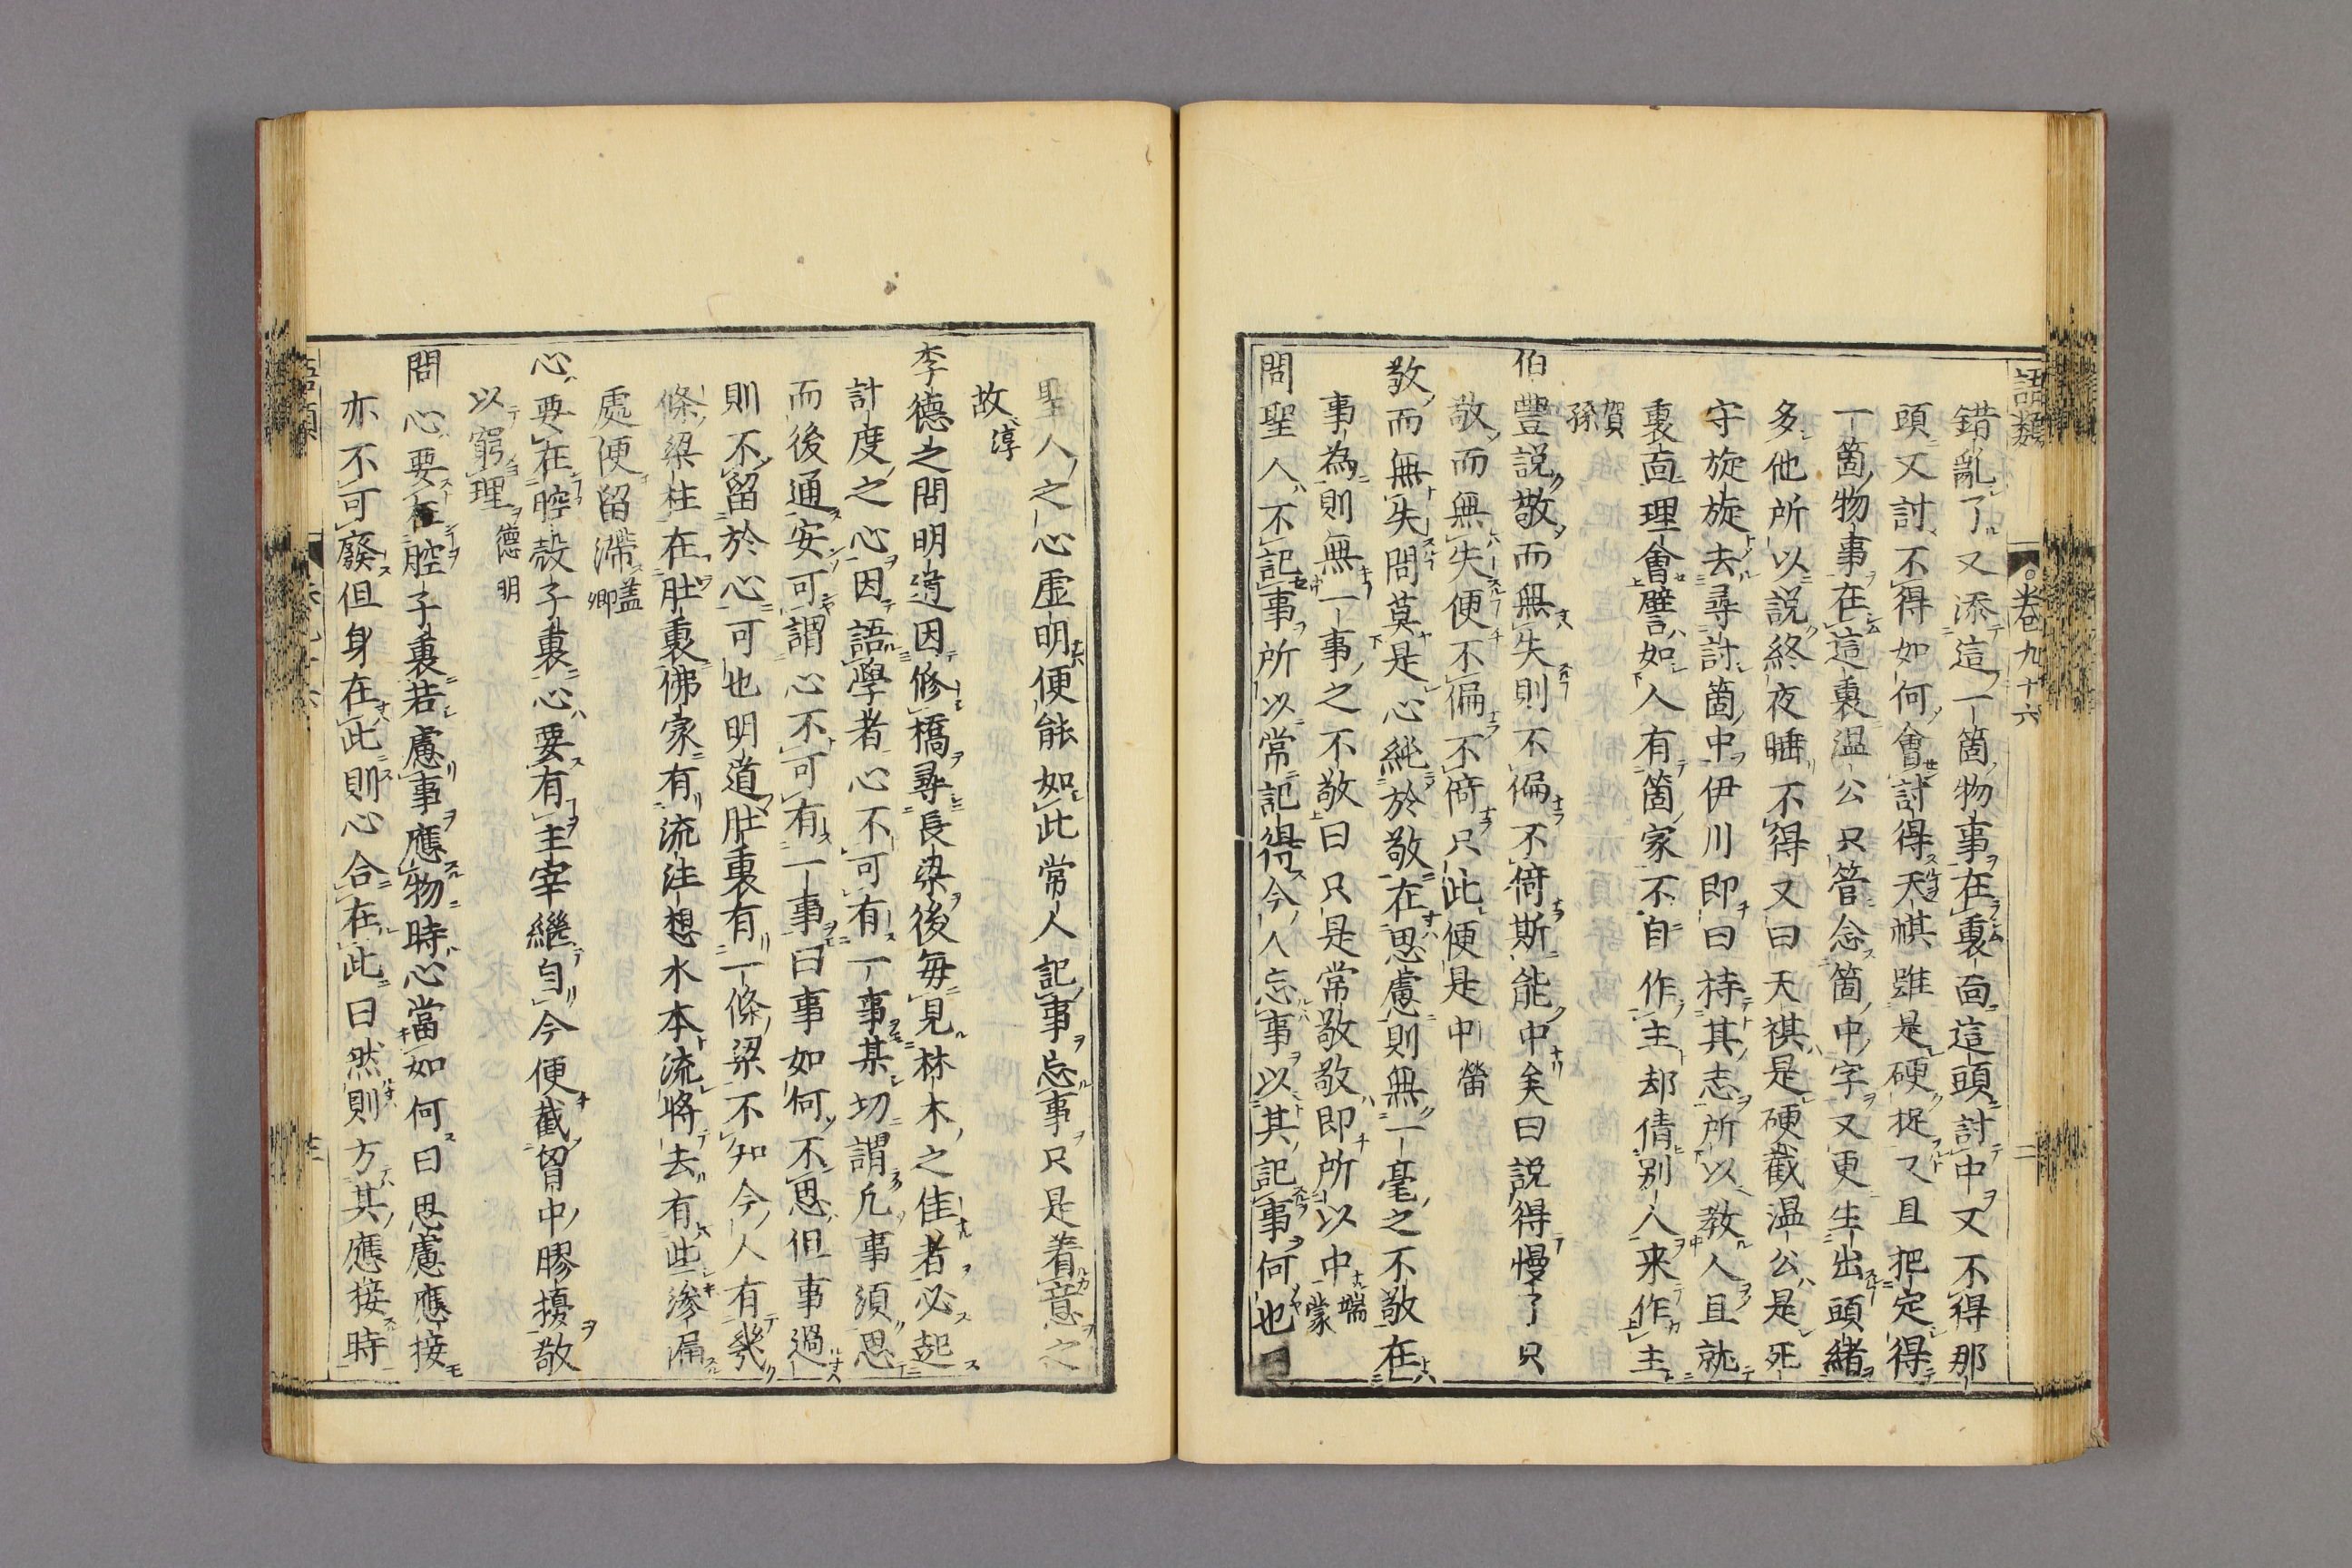 語類
卷九十六
二
錯亂了又添這一箇物事在裏面這頭討中又不得那
頭又討不得如何會討得天祺雖是硬捉又且把定得
一箇物事在這裏溫公只管念箇中字又更生出頭緒
多他所以說終夜睡不得又曰天祺是硬截溫公是死
守旋旋去尋討箇中伊川即曰持其志所以教人且就
裏面理會譬如人有箇家不自作主却倩别人来作主
賀孫
伯豐說敬而無失則不偏不倚斯能中矣曰說得慢了只
敬而無失便不偏不倚只此便是中㽦
敬而無失問莫是心純於敬在思慮則無一毫之不敬在
事為則無一事之不敬曰只是常敬敬即所以中端蒙
問聖人不記事所以常記得今人忘事以其記事何也曰
聖人之心虛明便能如此常人記事忘事只是着意之
故淳
李德之問明道因修橋尋長梁後每見林木之佳者必起
計度之心因語學者心不可有一事某切謂凡事須思
而後通安可謂心不可有一事曰事如何不思但事過
則不留於心可也明道肚裏有一條梁不知今人有幾
條梁柱在肚裏佛家有流注想水本流將去有些滲漏
處便留滯蓋卿
心要在腔殼子裏心要有主宰繼自今便截胷中膠擾敬
以窮理德明
問心要在腔子裏若慮事應物時心當如何曰思慮應接
亦不可廢但身在此則心合在此曰然則方其應接時
語類